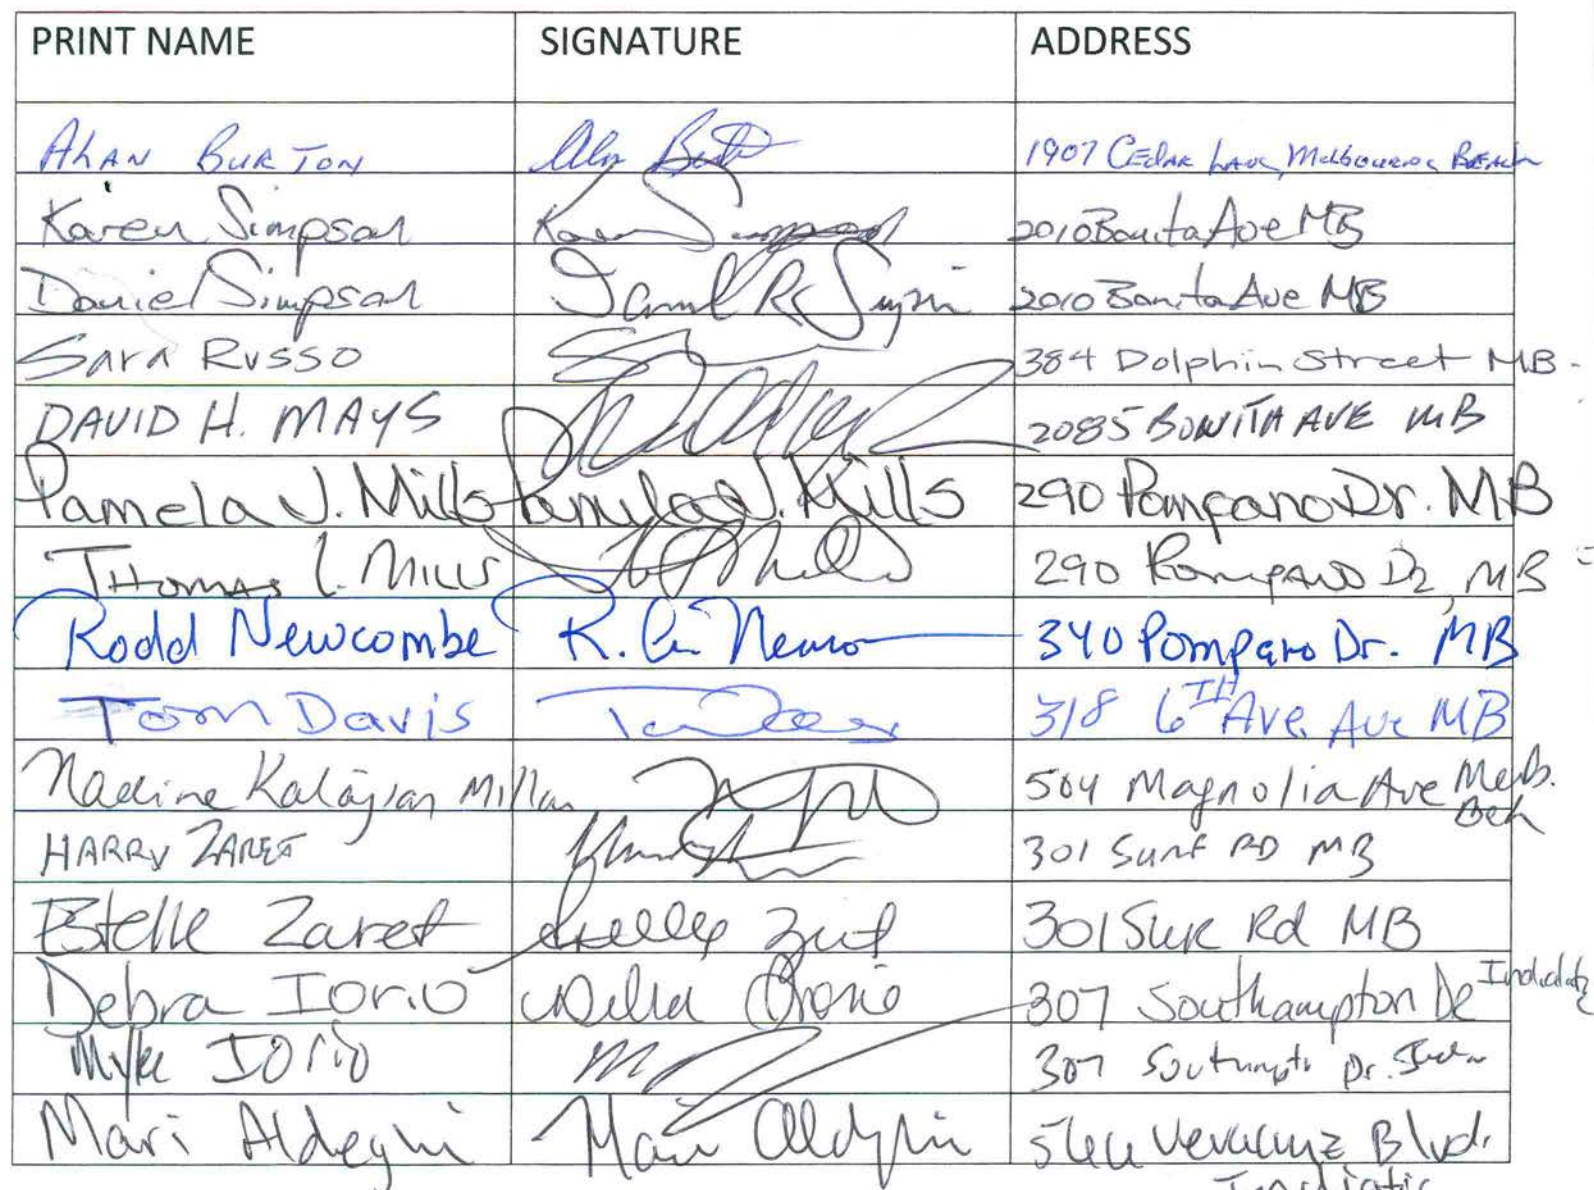 PRINT NAME SIGNATURE ADDRESS
ALAN BURTON Alan Burton 1907 CEDAR LANE, Melbourne BEACH
Karen Simpson Karen Simpson 2010 Bonita Ave MB
Daniel Simpson Daniel R Simpson 2010 Bonita Ave MB
SARA RUSSO 384 Dolphin Street MB
DAVID H. MAYS 2085 BONITA AVE MB
Pamela J. Mills Pamela J. Mills 290 Pompano Dr. MB
THOMAS L. MILLS 290 Pompano Dr, MB
Rodd Newcombe 340 Pompano Dr. MB
Tom Davis Tom Davis 318 6TH Ave. Ave MB
Nadine Kalajian Millan 504 Magnolia Ave Melb.
Bch
HARRY ZARET 301 SURF RD MB
Estelle Zaret Estelle Zaret 301 Surf Rd MB
Debra Iorio Debra Iorio 307 Southampton Dr Indialantic
Myke IORIO 307 Dr.
Mari Aldeghi Mari Aldeghi Veracruz Blvd.
Indialantic